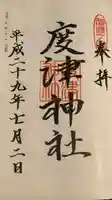 奉拝
度津神社
平成二十九年七月二日